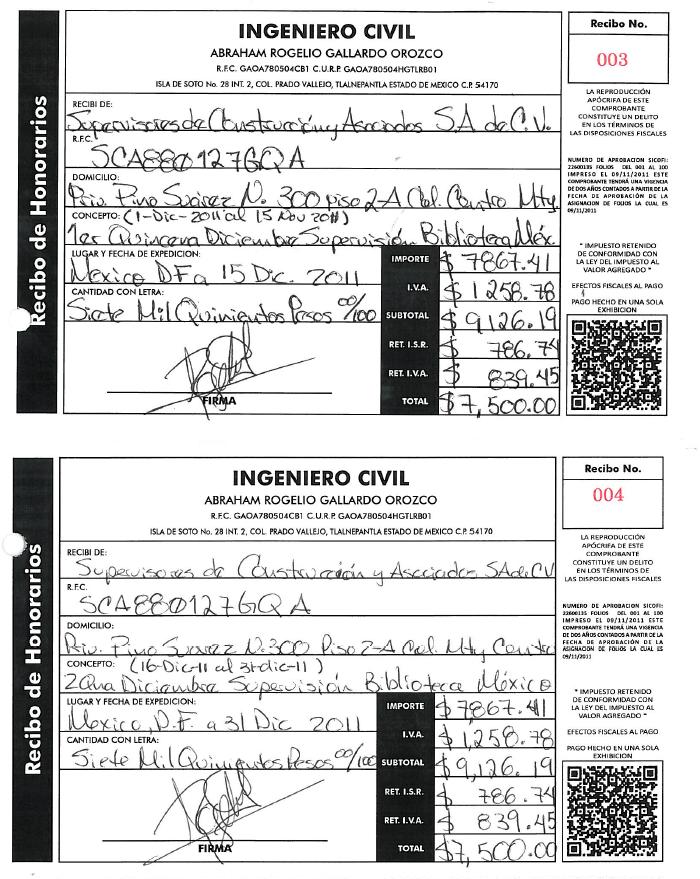 INGENIERO CIVIL
ABRAHAM ROGELIO GALLARDO OROZCO
R.F.C. GAOA780504CB1 C.U.R.P. GAOA780504HGTLRB01
ISLA DE SOTO No. 28 INT. 2, COL. PRADO VALLEJO, TLALNEPANTLA ESTADO DE MEXICO C.P. 54170
Recibo No.
003
Recibo de Honorarios
RECIBI DE:
Supervisores de Construcción y Asociados S.A. de C.V.
R.F.C.
SCA880127GQA
DOMICILIO:
Priv. Pino Suárez N. 300 piso 2-A Col. Centro Mty.
CONCEPTO: (1-Dic-2011 al 15 Nov 2011)
1er Quincena Diciembre Supervisión Biblioteca Méx.
LUGAR Y FECHA DE EXPEDICION:
Mexico DF a 15 Dic. 2011
CANTIDAD CON LETRA:
Siete Mil Quinientos Pesos 00/100
FIRMA
IMPORTE $ 7867.41
I.V.A. $ 1258.78
SUBTOTAL $ 9,126.19
RET. I.S.R. $ 786.74
RET. I.V.A. $ 839.45
TOTAL $7,500.00
LA REPRODUCCIÓN
APÓCRIFA DE ESTE
COMPROBANTE
CONSTITUYE UN DELITO
EN LOS TÉRMINOS DE
LAS DISPOSICIONES FISCALES
NUMERO DE APROBACION SICOFI:
22600135 FOLIOS DEL 001 AL 100
IMPRESO EL 09/11/2011 ESTE
COMPROBANTE TENDRÁ UNA VIGENCIA
DE DOS AÑOS CONTADOS A PARTIR DE LA
FECHA DE APROBACIÓN DE LA
ASIGNACION DE FOLIOS LA CUAL ES
09/11/2011
" IMPUESTO RETENIDO
DE CONFORMIDAD CON
LA LEY DEL IMPUESTO AL
VALOR AGREGADO "
EFECTOS FISCALES AL PAGO
PAGO HECHO EN UNA SOLA
EXHIBICION
INGENIERO CIVIL
ABRAHAM ROGELIO GALLARDO OROZCO
R.F.C. GAOA780504CB1 C.U.R.P. GAOA780504HGTLRB01
ISLA DE SOTO No. 28 INT. 2, COL. PRADO VALLEJO, TLALNEPANTLA ESTADO DE MEXICO C.P. 54170
Recibo No.
004
Recibo de Honorarios
RECIBI DE:
Supervisores de Construcción y Asociados SA de CV
R.F.C.
SCA880127GQA
DOMICILIO:
Priv. Pino Suarez N. 300 Piso 2-A Col. Mty Centro
CONCEPTO: (16-Dic-11 al 31-dic-11)
2Qna Diciembre Supervisión Biblioteca México
LUGAR Y FECHA DE EXPEDICION:
Mexico, D.F. a 31 Dic 2011
CANTIDAD CON LETRA:
Siete Mil Quinientos Pesos 00/100
FIRMA
IMPORTE $7867.41
I.V.A. $1,258.78
SUBTOTAL $9,126.19
RET. I.S.R. $ 786.74
RET. I.V.A. $ 839.45
TOTAL $7,500.00
LA REPRODUCCIÓN
APÓCRIFA DE ESTE
COMPROBANTE
CONSTITUYE UN DELITO
EN LOS TÉRMINOS DE
LAS DISPOSICIONES FISCALES
NUMERO DE APROBACION SICOFI:
22600135 FOLIOS DEL 001 AL 100
IMPRESO EL 09/11/2011 ESTE
COMPROBANTE TENDRÁ UNA VIGENCIA
DE DOS AÑOS CONTADOS A PARTIR DE LA
FECHA DE APROBACIÓN DE LA
ASIGNACION DE FOLIOS LA CUAL ES
09/11/2011
" IMPUESTO RETENIDO
DE CONFORMIDAD CON
LA LEY DEL IMPUESTO AL
VALOR AGREGADO "
EFECTOS FISCALES AL PAGO
PAGO HECHO EN UNA SOLA
EXHIBICION